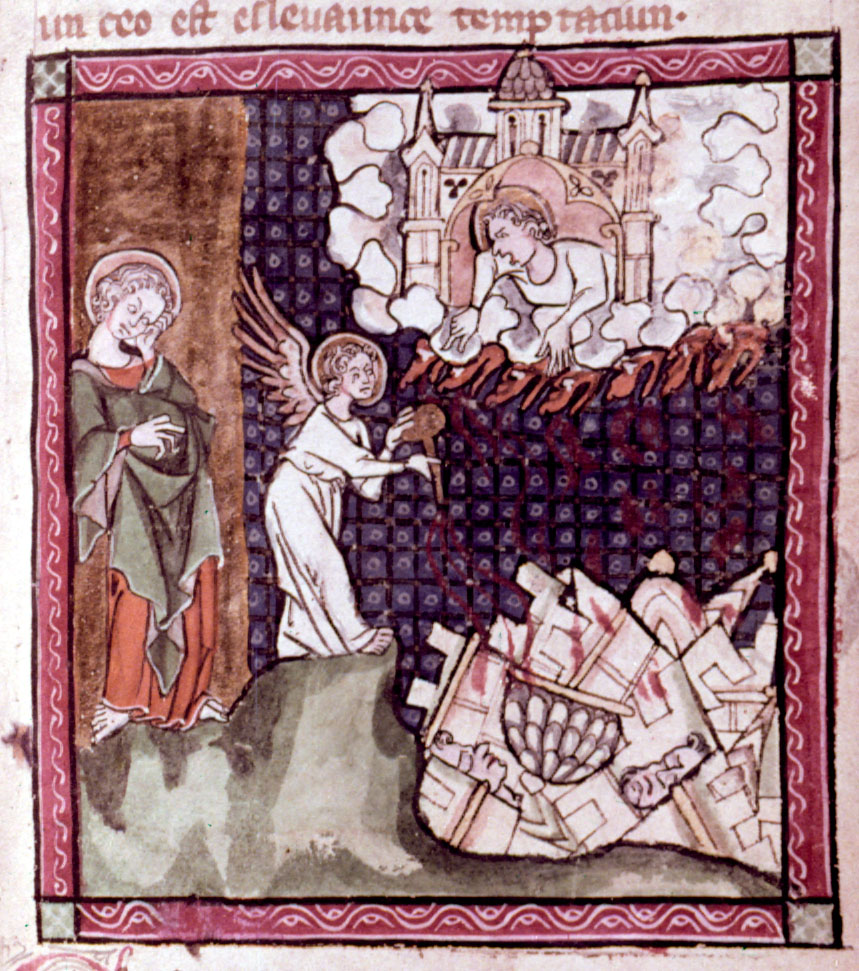 un ceo est esleuaunce temptaciun·